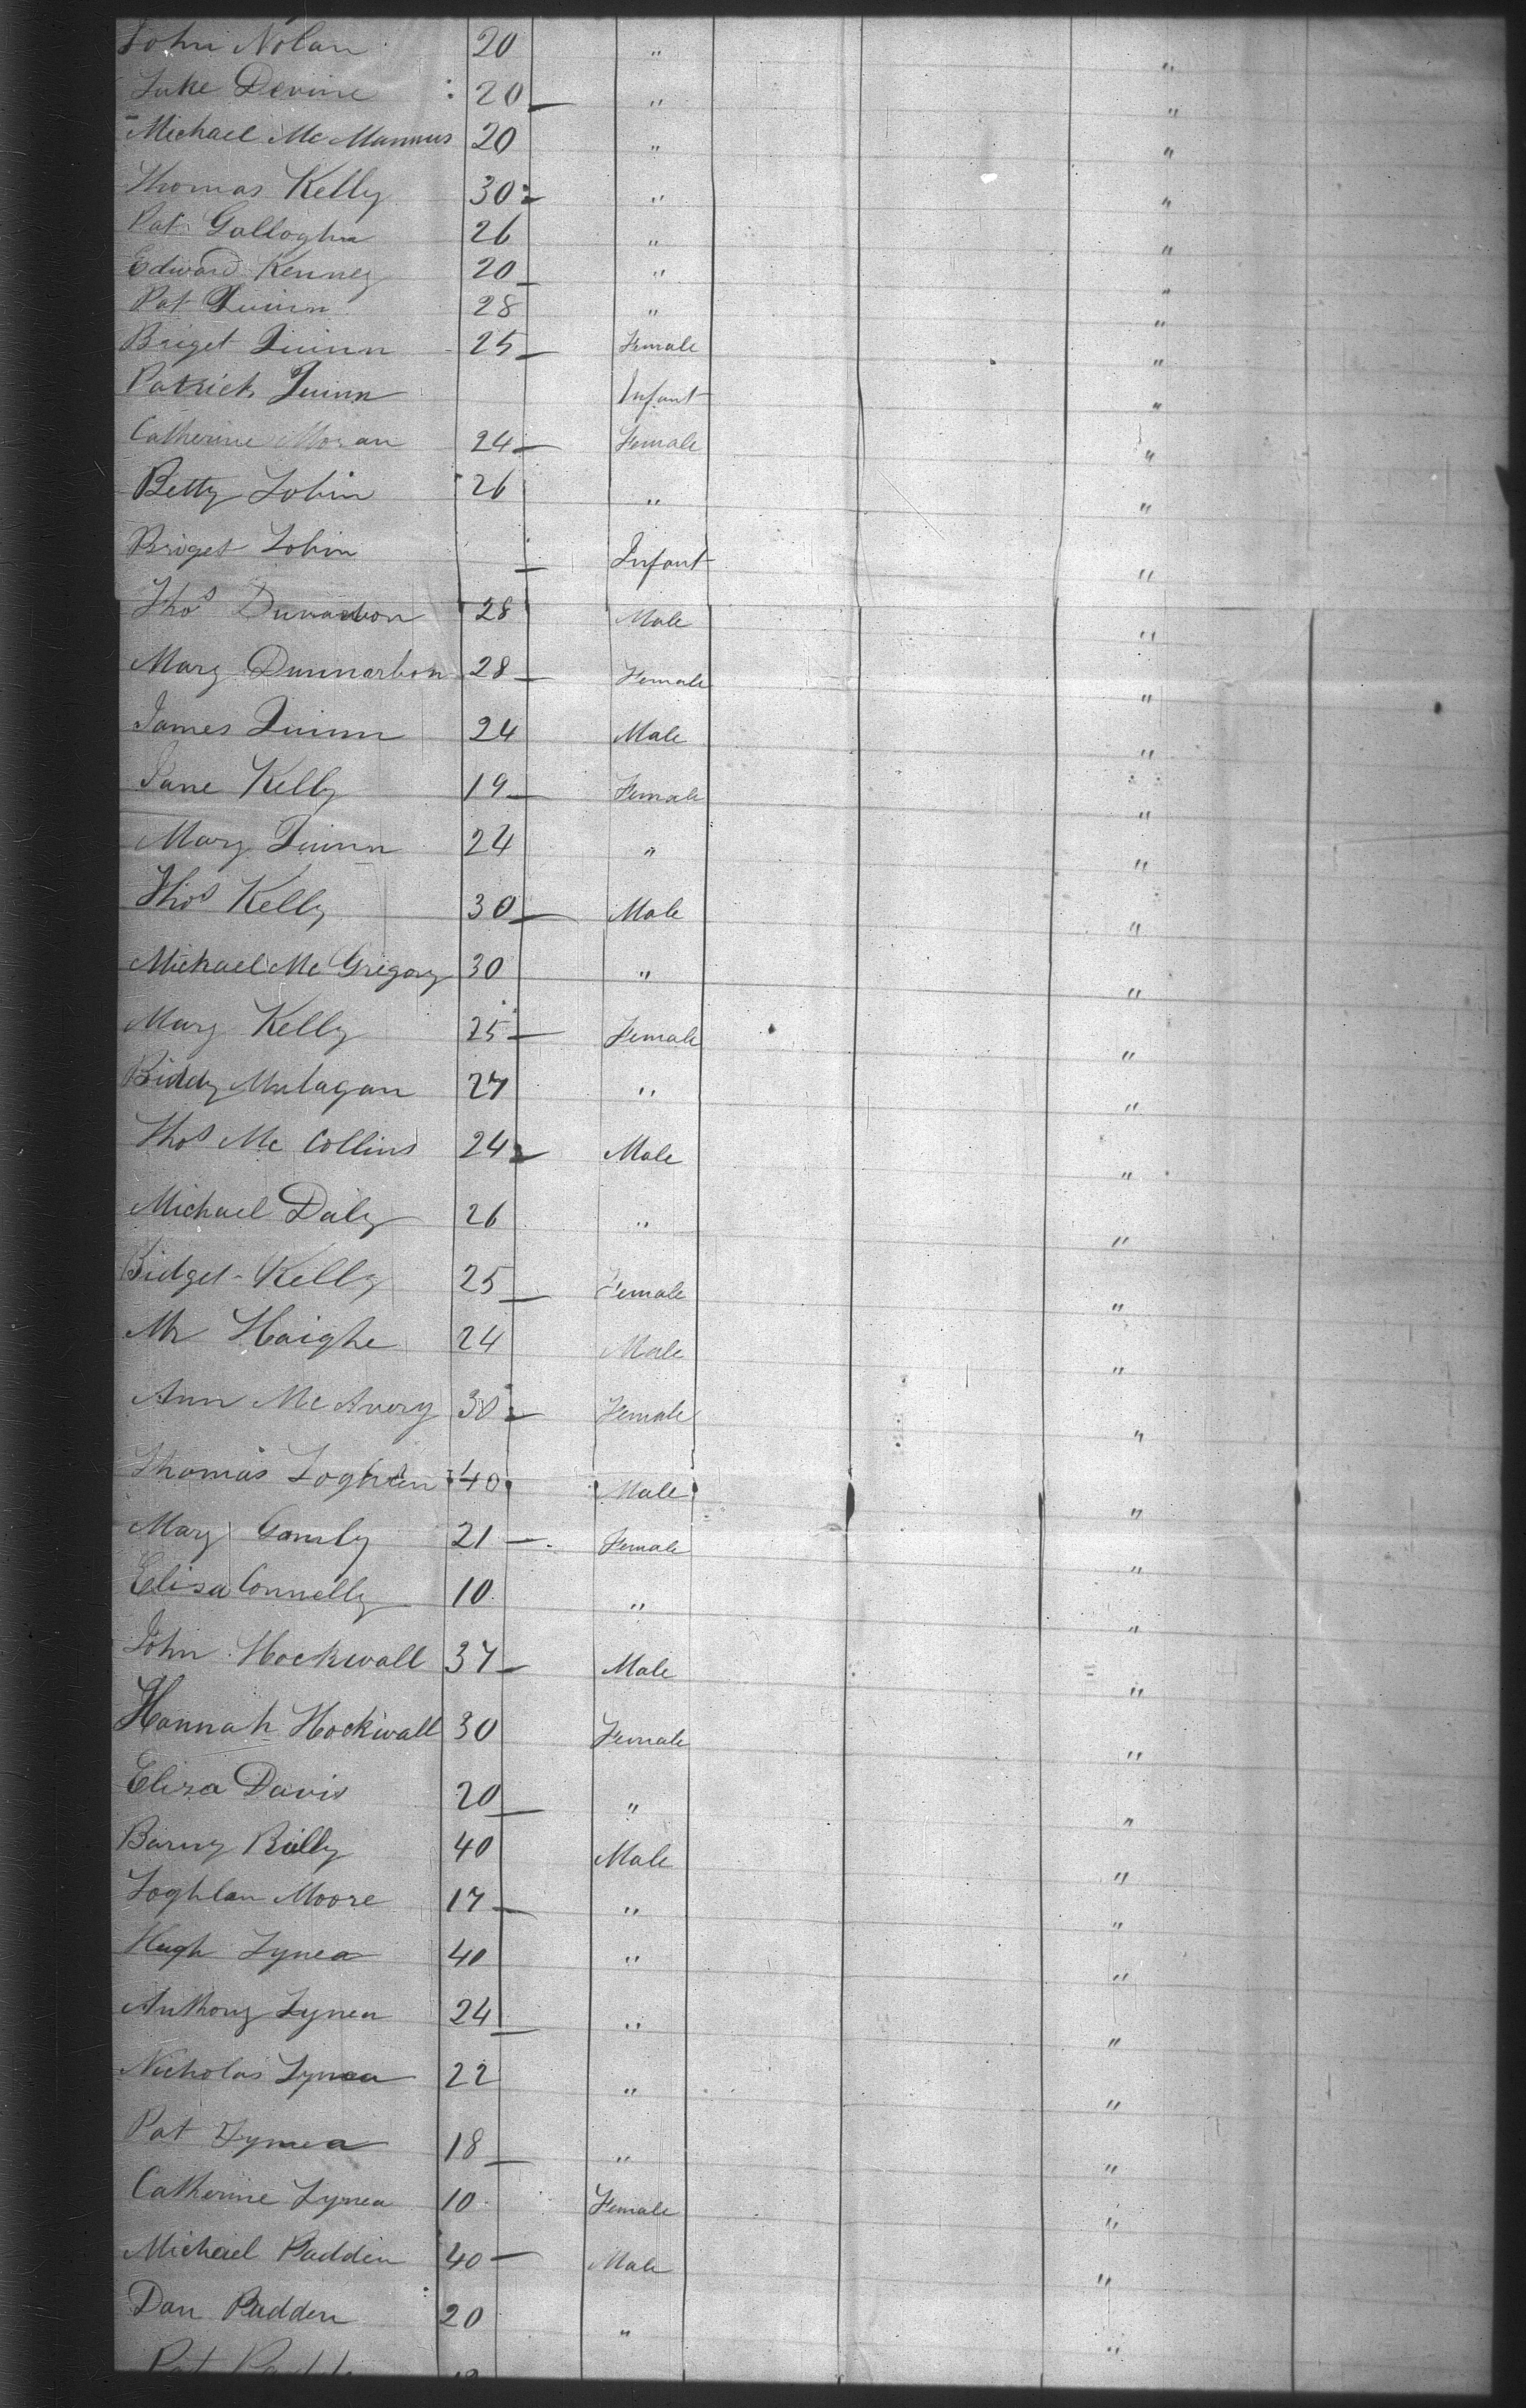 John Nolan 20 " "
Luke Devine 20 " "
Michael Mc Mannus 20 " "
Thomas Kelly 30 " "
Pat Gallogha 26 " "
Edward Kenney 20 " "
Pat Quinn 28 " "
Briget Quinn 25 Female "
Patrick Quinn Infant "
Catherine Moran 24 Female "
Betty Tobin 26 " "
Briget Tobin Infant "
Thos 28 Male "
Mary 28 Female "
James Quinn 24 Male "
Jane Kelly 19 Female "
Mary Quinn 24 " "
Thos Kelly 30 Male "
Michael Mc Gregory 30 " "
Mary Kelly 25 Female "
Biddy Mulagan 27 " "
Thos Mc Collins 24 Male "
Michael Daly 26 " "
Bidget Kelly 25 Female "
Mr Haighe 24 Male "
Ann Mc Avery 30 Female "
Thomas 40 Male "
Mary 21 Female "
Elisa Connelly 10 " "
John Hockwall 37 Male "
Hannah Hockwall 30 Female "
Eliza Davis 20 " "
Barny Rielly 40 Male "
Loghlan Moore 17 " "
Hugh Lynea 40 " "
Anthony Lynea 24 " "
Nicholas Lynea 22 " "
Pat Lynea 18 " "
Catherine Lynea 10 Female "
Michael Padden 40 Male "
Dan Padden 20 " "